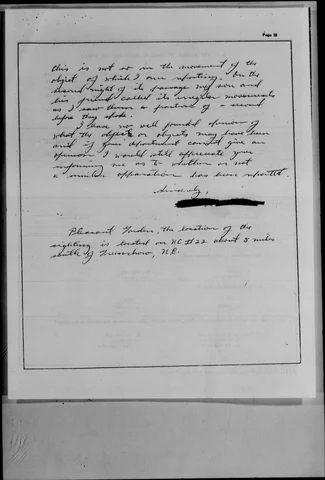 Page 18
this is not so in the movement of the
object of which I am reporting. On the
second night of its passage my son and
his friend called its irregular movements
as I saw them a fraction of a second
before they spoke.
I have no well founded opinion of
what the object or objects may have been
and if your department cannot give an
opinion I would still appreciate your
informing me as to whether or not
a similar apparition has been reported.
Sincerely,
Pleasant Garden, the location of the
sighting is located on NC #22 about 8 miles
south of Greensboro, N.C.